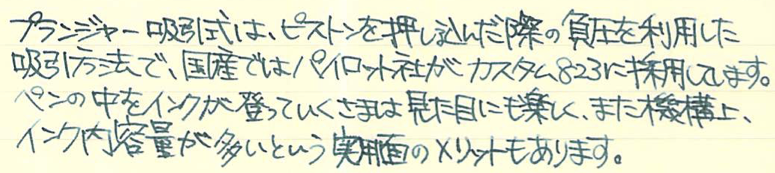 プランジャー吸引式は、ピストンを押し込んだ際の負圧を利用した
吸引方法で、国産ではパイロット社がカスタム823に採用しています。
ペンの中をインクが登っていくさまは見た目にも楽しく、また機構上、
インク内容量が多いという実用面のメリットもあります。